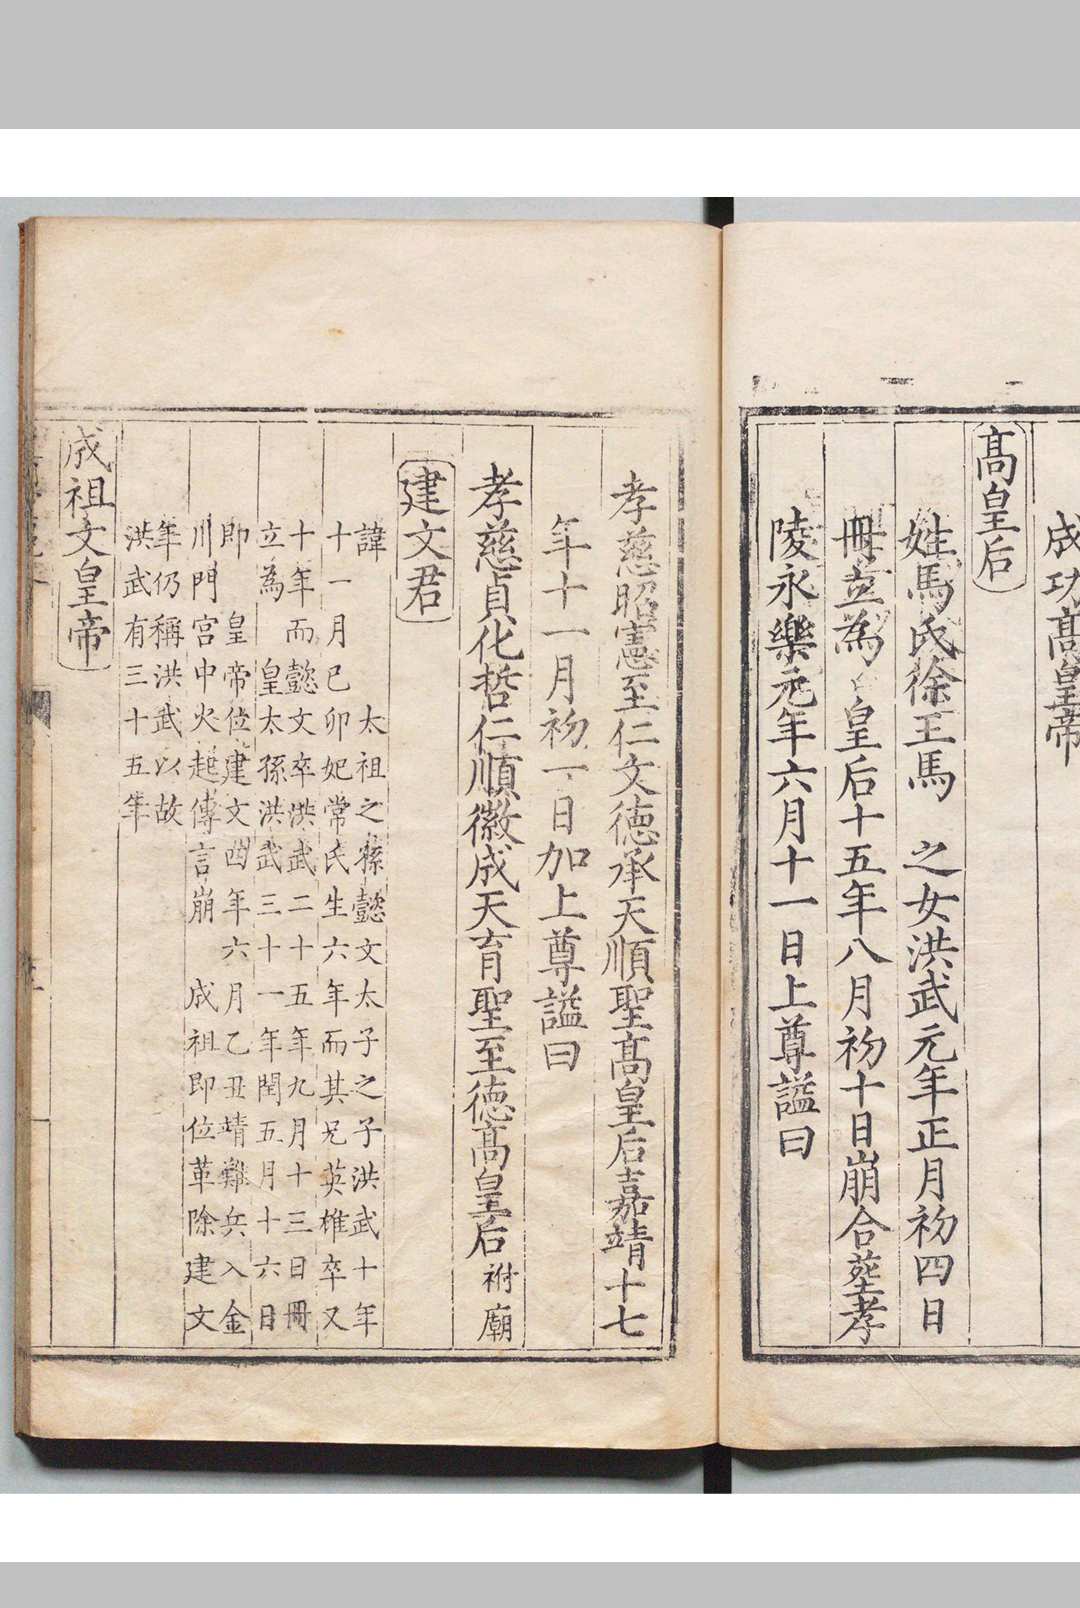 成功高皇帝
高皇后
姓馬氏徐王馬　之女洪武元年正月初四日
冊立為　皇后十五年八月初十日崩合塟孝
陵永樂元年六月十一日上尊謚曰
孝慈昭憲至仁文徳承天順聖高皇后嘉靖十七
年十一月初一日加上尊謚曰
孝慈貞化哲仁順徽成天育聖至徳高皇后祔廟
建文君
諱　　　太祖之孫懿文太子之子洪武十年
十一月己卯妃常氏生六年而其兄英雄卒又
十年而懿文卒洪武二十五年九月十三日冊
立為　皇太孫洪武三十一年閏五月十六日
即　皇帝位建文四年六月乙丑靖難兵入金
川門宮中火起傳言崩　成祖即位革除建文
年仍稱洪武以故
洪武有三十五年
成祖文皇帝